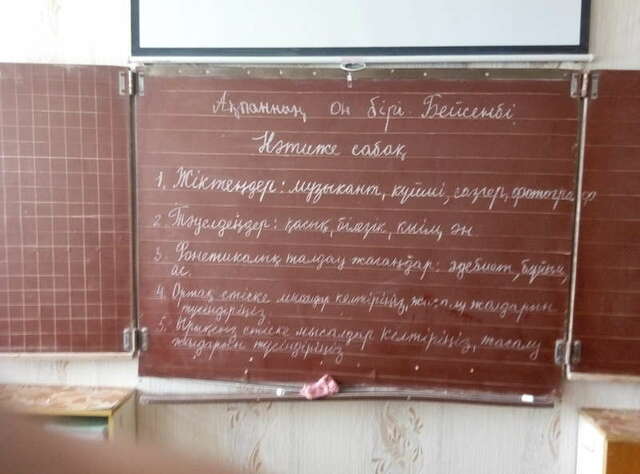 Ақпанның он бірі Бейсенбі
Нәтиже сабақ
1. Жіктеңдер: музыкант, күйші, сазгер, фотограф
2. Тәуелдеңдер: қасық, білезік, киім, ән
3. Фонетикалық талдау жасаңдар: әдебиет,
ас.
4. Ортақ етіске мысалдар келтіріңіз, жасалу жолдарын
түсіндіріңіз
5. Ырықсыз етіске мысалдар келтіріңіз, жасалу
жолдарын түсіндіріңіз